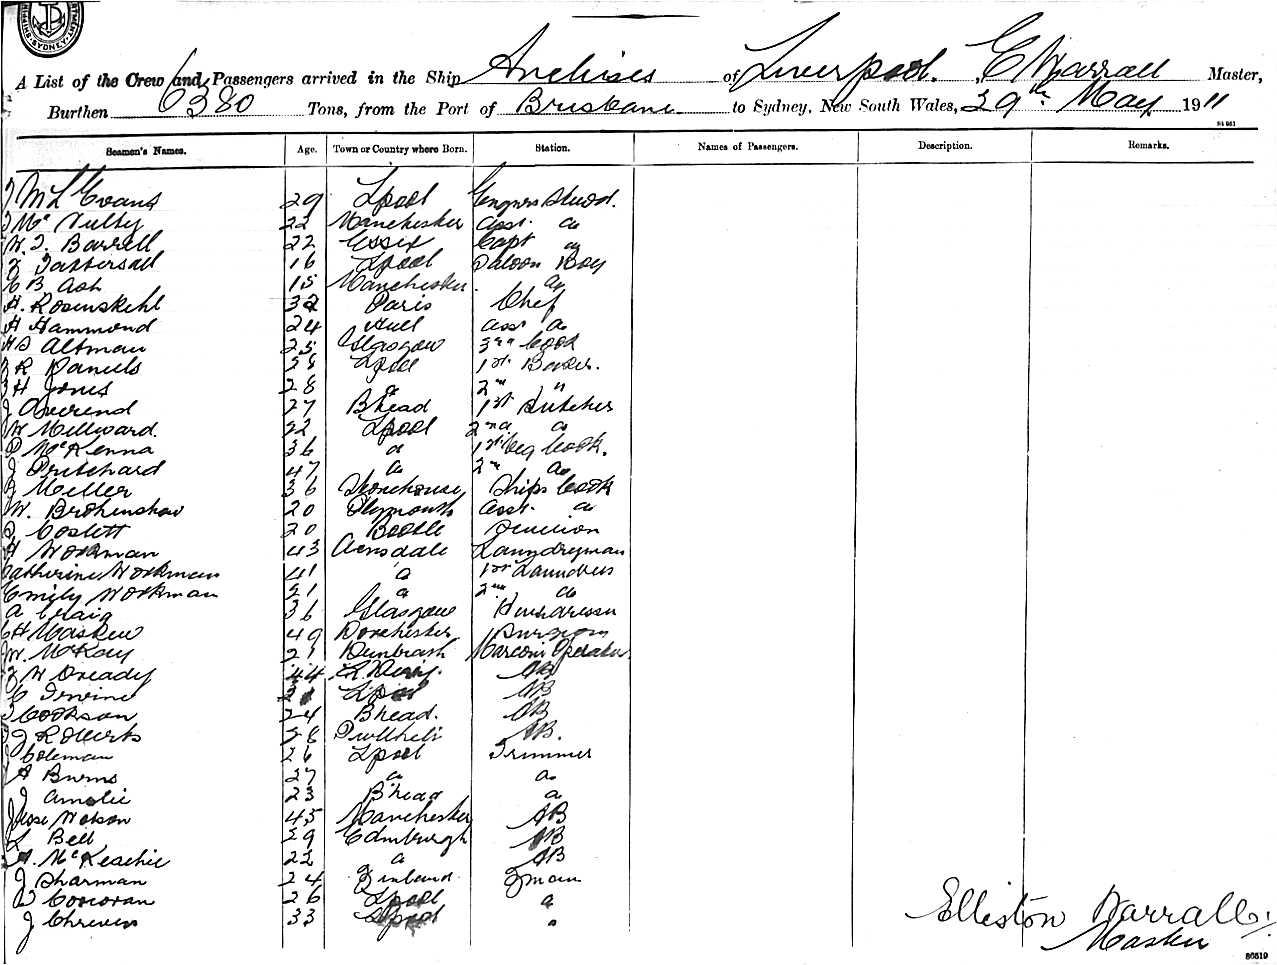 SHIPPING SYDNEY
A List of the Crew and Passengers arrived in the Ship Anchises of Liverpool, E Warrall Master,
Burthen 6380 Tons, from the Port of Brisbane to Sydney, New South Wales, 29th May 1911
Seamen's Names. Age. Town or Country where Born. Station. Names of Passengers. Description. Remarks.
M L Evans 29 Lpool Engnrs Stwd.
Mc Nulty 22 Manchester Asst do
W. J. Barrell 22 Essex Capt do
Tattersall 16 Lpool Saloon Boy
C B Ash 15 Manchester do
H. Rosenskehl 32 Paris Chef
H Hammond 24 Hull asst do
H S Altman 25 Glasgow 3rd Cook
R Daniels 28 Lpool 1st Baker.
H Jones 28 do 2nd "
J 27 Bhead 1st Butcher
W Millward. 22 Lpool 2nd do
P McKenna 36 do 1st Veg Cook.
J Pritchard 47 do 2nd do
Miller 36 Stonehouse Ships Cook
W. Brokenshaw 20 Plymouth Asst. do
Coslett 20 Bootle
H Workman 43 Ainsdale Laundryman
Catherine Workman 41 do 1st Laundress
Emily Workman 21 do 2nd do
A Craig 36 Glasgow Hairdresser
C H Maskew 49 Dorchester Surgeon
W. McKay 21 Marconi Operator
W Dready 44 AB
C Irvine Lpool AB
Cookson 24 Bhead. AB
J Roberts 28 Pwllheli AB.
J Coleman 26 Lpool Trimmer
A Burns 27 do do
J 23 Bhead do
Jesse Watson 45 Manchester AB
L Bell 29 Edinburgh AB
A. McKeachie 22 do AB
J Sharman 24 Finland Fman
D Corcoran 26 Lpool do
J 33 Lpool "
Elliston Warrall
Master
86519